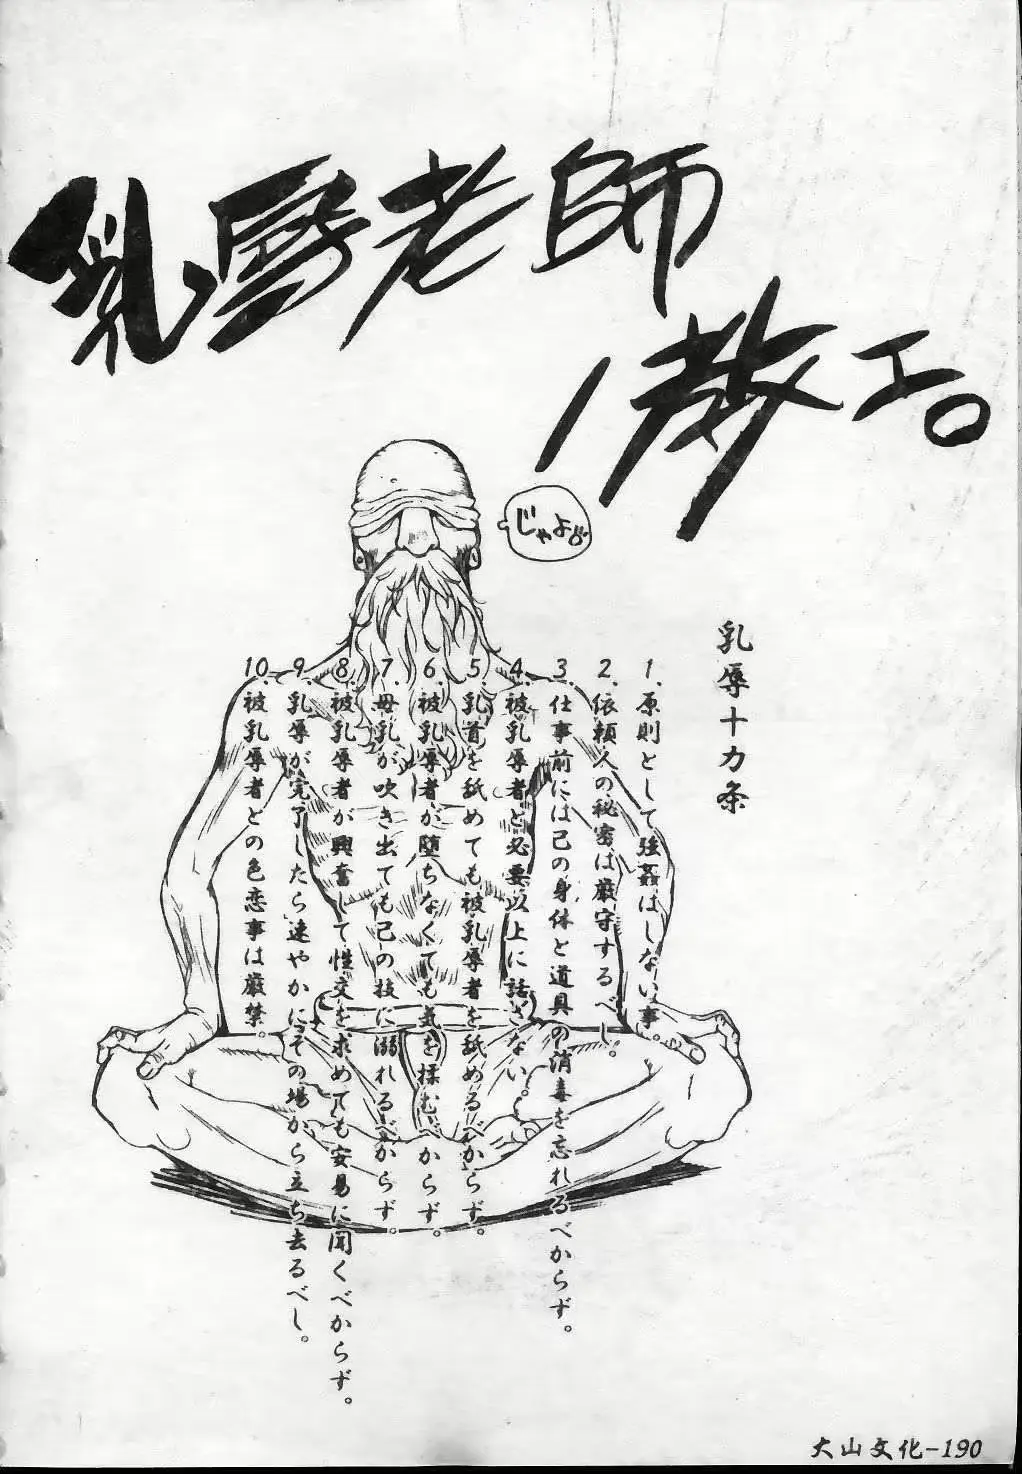 乳辱老師
ノ教エ。
じゃよ。
乳辱十カ条
1.原則として強姦はしない事。
2.依頼人の秘密は厳守するべし。
3.仕事前には己の身体と道具の消毒を忘れるべからず。
4.被乳辱者と必要以上に話さない。
5.乳首を舐めても被乳辱者を舐めるべからず。
6.被乳辱者が堕ちなくても気を揉むべからず。
7.母乳が吹き出ても己の技に溺れるべからず。
8.被乳辱者が興奮して性交を求めても安易に聞くべからず。
9.乳辱が完了したら速やかにその場から立ち去るべし。
10.被乳辱者との色恋事は厳禁。
大山文化-190